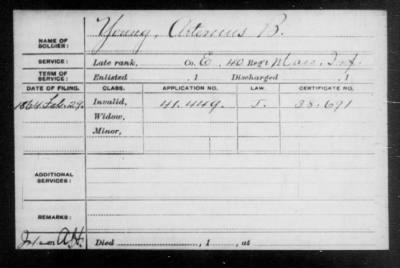 NAME OF SOLDIER: Young, Artemus B.
SERVICE: Late rank, Co. E, 40 Reg't Mass. Inf.
TERM OF SERVICE: Enlisted , 1 Discharged , 1
DATE OF FILING. CLASS. APPLICATION NO. LAW. CERTIFICATE NO.
1864 Feb. 29. Invalid, 41.449. J. 38.691
Widow,
Minor,
ADDITIONAL SERVICES:
REMARKS:
Died , 1 , at